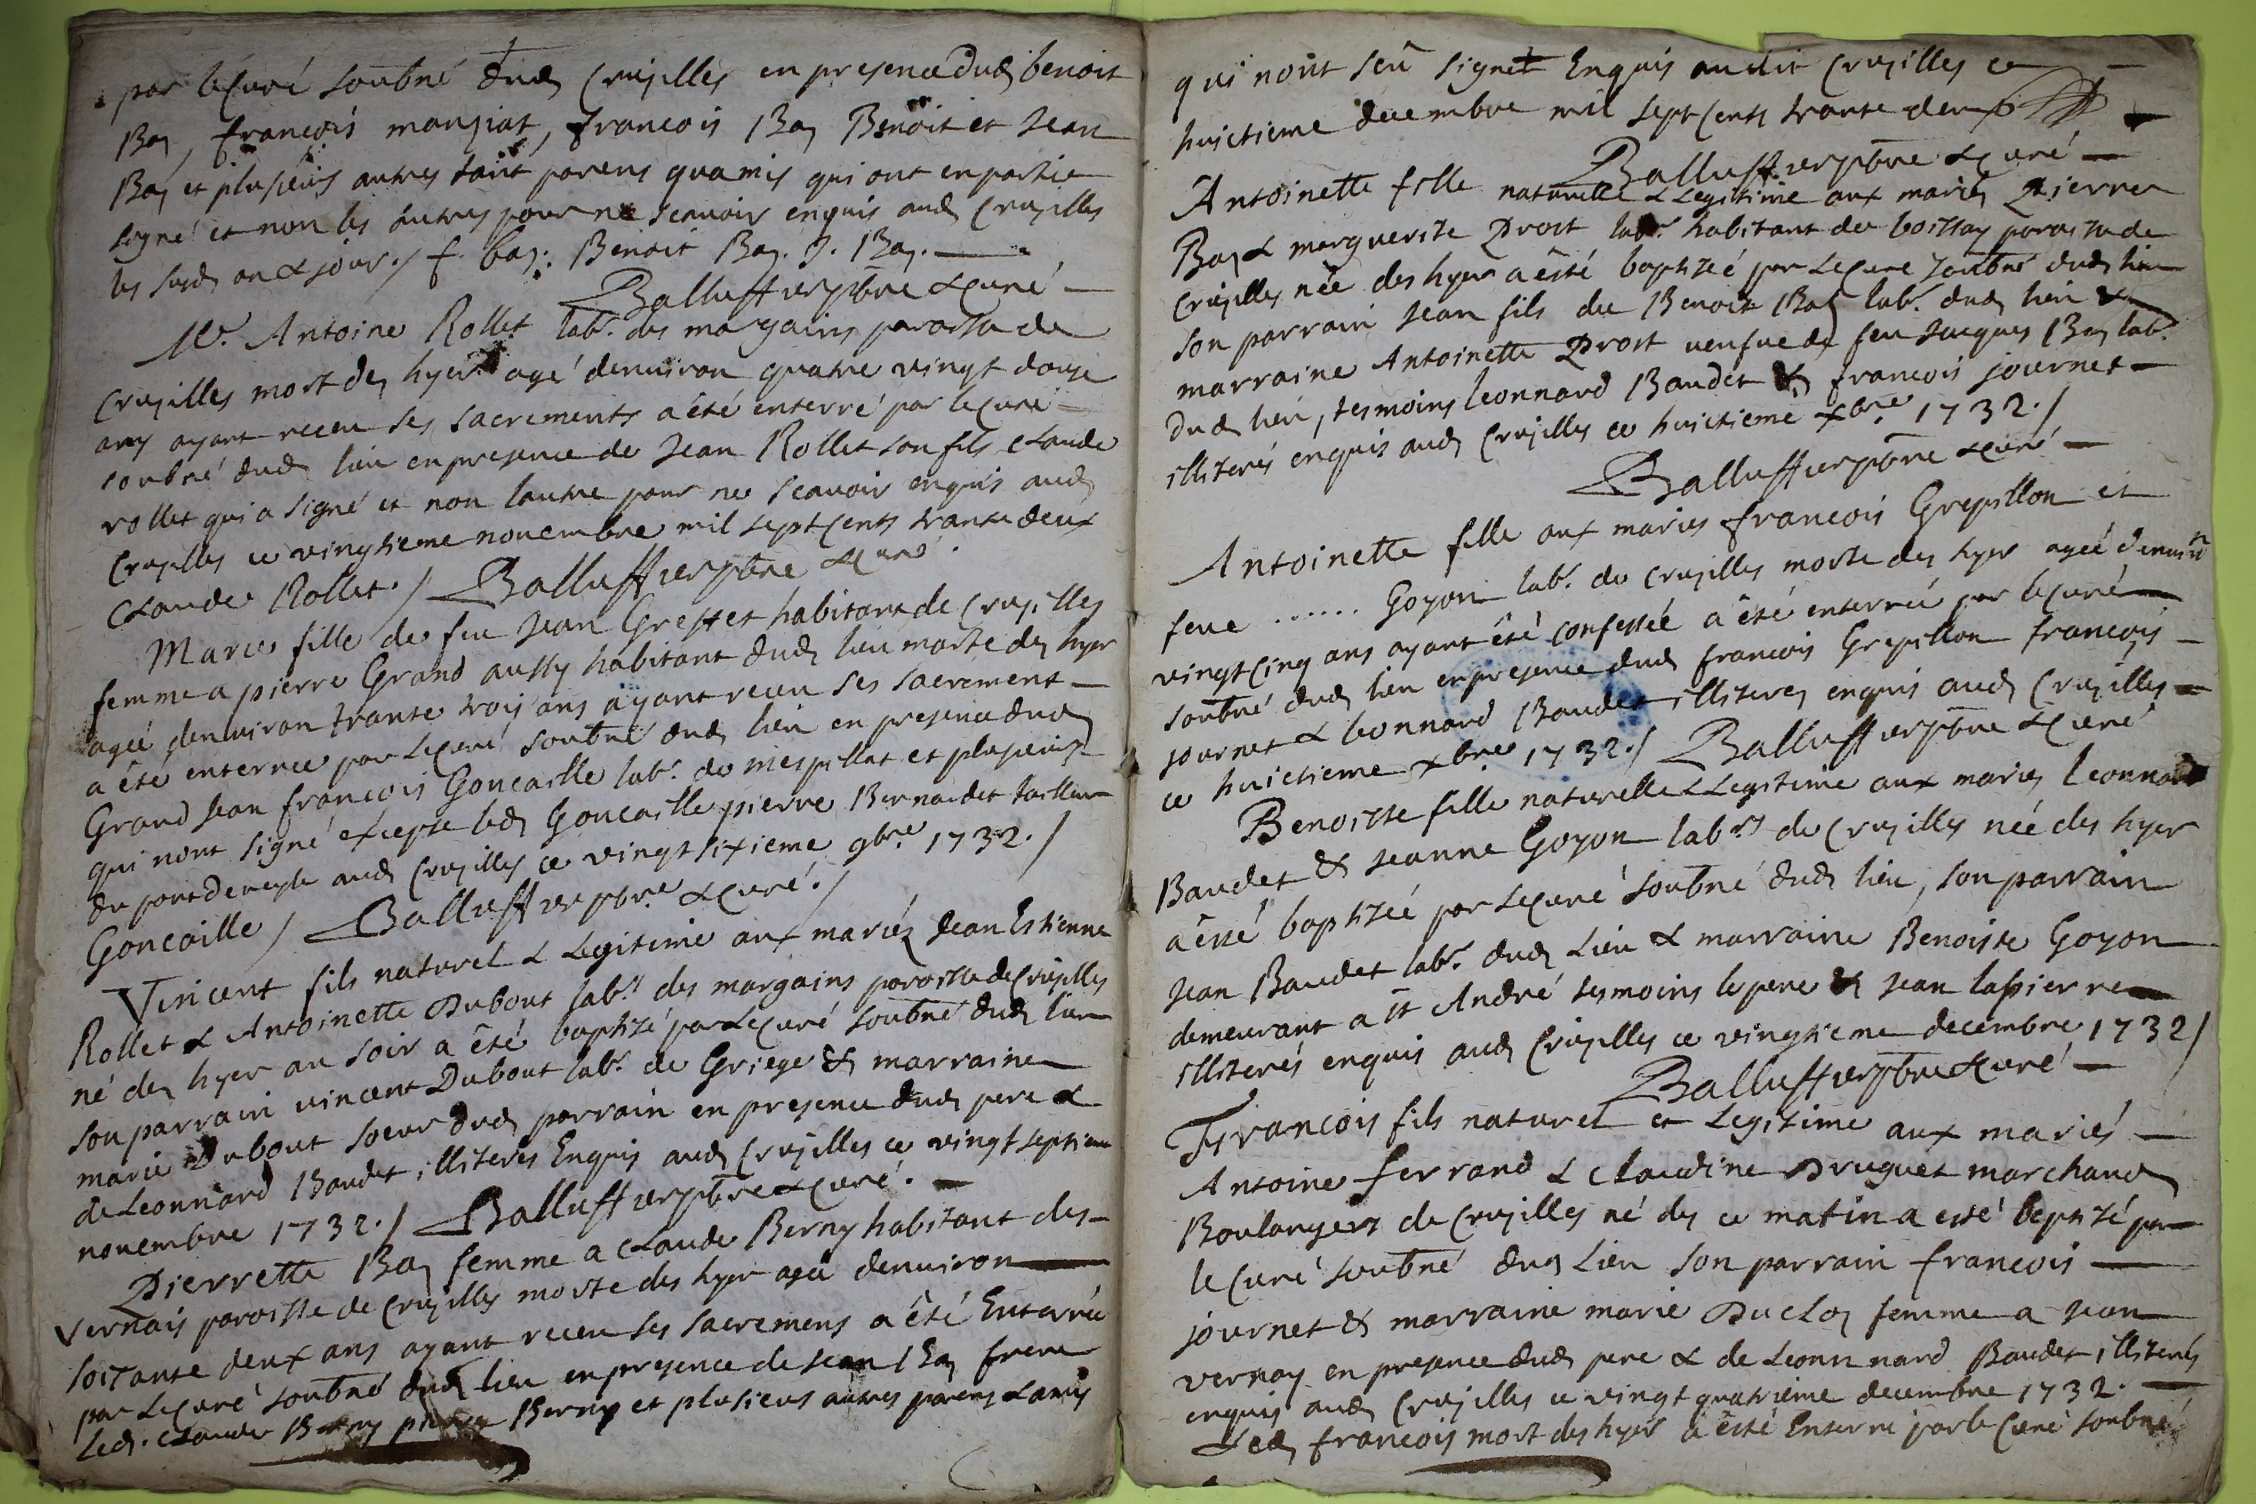 par le Curé soubné dud Crusilles en presence dud benoit
Bay, francois mangiat, francois Bay Benoit et Jean
Bay et plusieurs autres tant parens quamis qui ont en partie
signé et non les autres pour ne scauoir enquis aud Crusilles
les susd an & jour ./ f. bay: Benoit Bay. J. Bay.
Balluffier pbre & curé
Me. Antoine Rollet labr. des margains paroisse de
Crusilles mort des hyer agé denuiron quatre vingt douze
ans ayant receu ses sacrements a été enterré par le Curé
soubné dud lieu en presence de Jean Rollet son fils Claude
rollet qui a signé et non lautre pour ne scauoir enquis aud
Crusilles ce vingtieme nouembre mil sept Cents trante deux
Claude Rollet ./ Balluffier pbre & curé.
Marie fille de feu Jean Greffet habitant de Crusilles
femme a pierre Grand aussy habitant dud lieu morte des hyer
agée denuiron trante trois ans ayant receu ses sacrement
a été enterree par le Curé soubné dud lieu en presence dud
Grand Jean francois Goncaille labr. de mespillat et plusieurs
qui nont signé excepte led Goncaille pierre Bernardet tailleur
du pont de veyle aud Crusilles ce vingt sixieme 9bre 1732 ./
Goncaille / Balluffier pbre & curé ./
Vincent fils naturel & Legitime aux mariéz Jean Estienne
Rollet & Antoinette Dubout labrs des margains paroisse de Crusilles
né des hyer au soir a été baptizé par le Curé soubné dud lieu
son parrain vincent Dubout labr. de Griege & marraine
marie Dubout soeur dud parrain en presence dud pere &
de Leonnard Baudet illiterés Enquis aud Crusilles ce vingt septieme
nouembre 1732 ./ Balluffier pbre & curé.
Pierrette Bay femme a Claude Berny habitant des
vernais paroisse de Crusilles morte des hyer agée denuiron
soixante deux ans ayant receu ses sacremens a été Enterrée
par le Curé soubné dud lieu en presence de Jean Bay frere
Led. Claude Berny pierre Berny et plusieurs autres parens & amis
qui nont seu signer Enquis audit Crusilles ce
huictieme decembre mil sept Cents trante deux
Balluffier pbre & curé
Antoinette fille naturelle & Legitime aux mariés Pierre
Bay & marguerite Prost labr. habitant de boissay paroisse de
Crusilles née des hyer a êsté baptizée par le Curé soubné dud lieu
son parrain Jean fils de Benoit Bay labr. dud lieu &
marraine Antoinette Prost veufue de feu Jacques Bay labr.
dud lieu, tesmoins Leonnard Baudet & francois journet
illiterés enquis aud Crusilles ce huictieme xbre 1732 ./
Balluffier pbre & curé
Antoinette fille aux mariés francois Grepillon et
feue ...... Goyon labr. de Crusilles morte des hyer agée denuirn
vingt Cinq ans ayant été confessée a êté enterrée par le Curé
soubné dud lieu en presence dud francois Grepillon francois
journet & Leonnard Baudet illiterez enquis aud Crusilles
ce huictieme xbre 1732 ./ Balluffier pbre & curé
Benoiste fille naturelle & Legitime aux mariés Leonnard
Baudet & Jeanne Goyon labrs de Crusilles née des hyer
a êsté baptizée par le Curé soubné dud lieu, son parrain
Jean Baudet labr. dud Lieu & marraine Benoiste Goyon
demeurant a St André tesmoins le pere & Jean lapierre
illiterés enquis aud Crusilles ce vingtieme decembre 1732 /
Balluffier pbre & curé
Francois fils naturel et Legitime aux mariés
Antoine ferrand & Claudine Druguet marchand
Boulangers de Crusilles né des ce matin a esté baptizé par
le Curé soubné dud Lieu son parrain francois
journet & marraine marie Duclos femme a Jean
vernay en presence dud pere & de Leonnard Baudet illiterés
enquis aud Crusilles ce vingt quatrieme decembre 1732.
Led francois mort des hyer a êsté Enterré par le Curé soubné